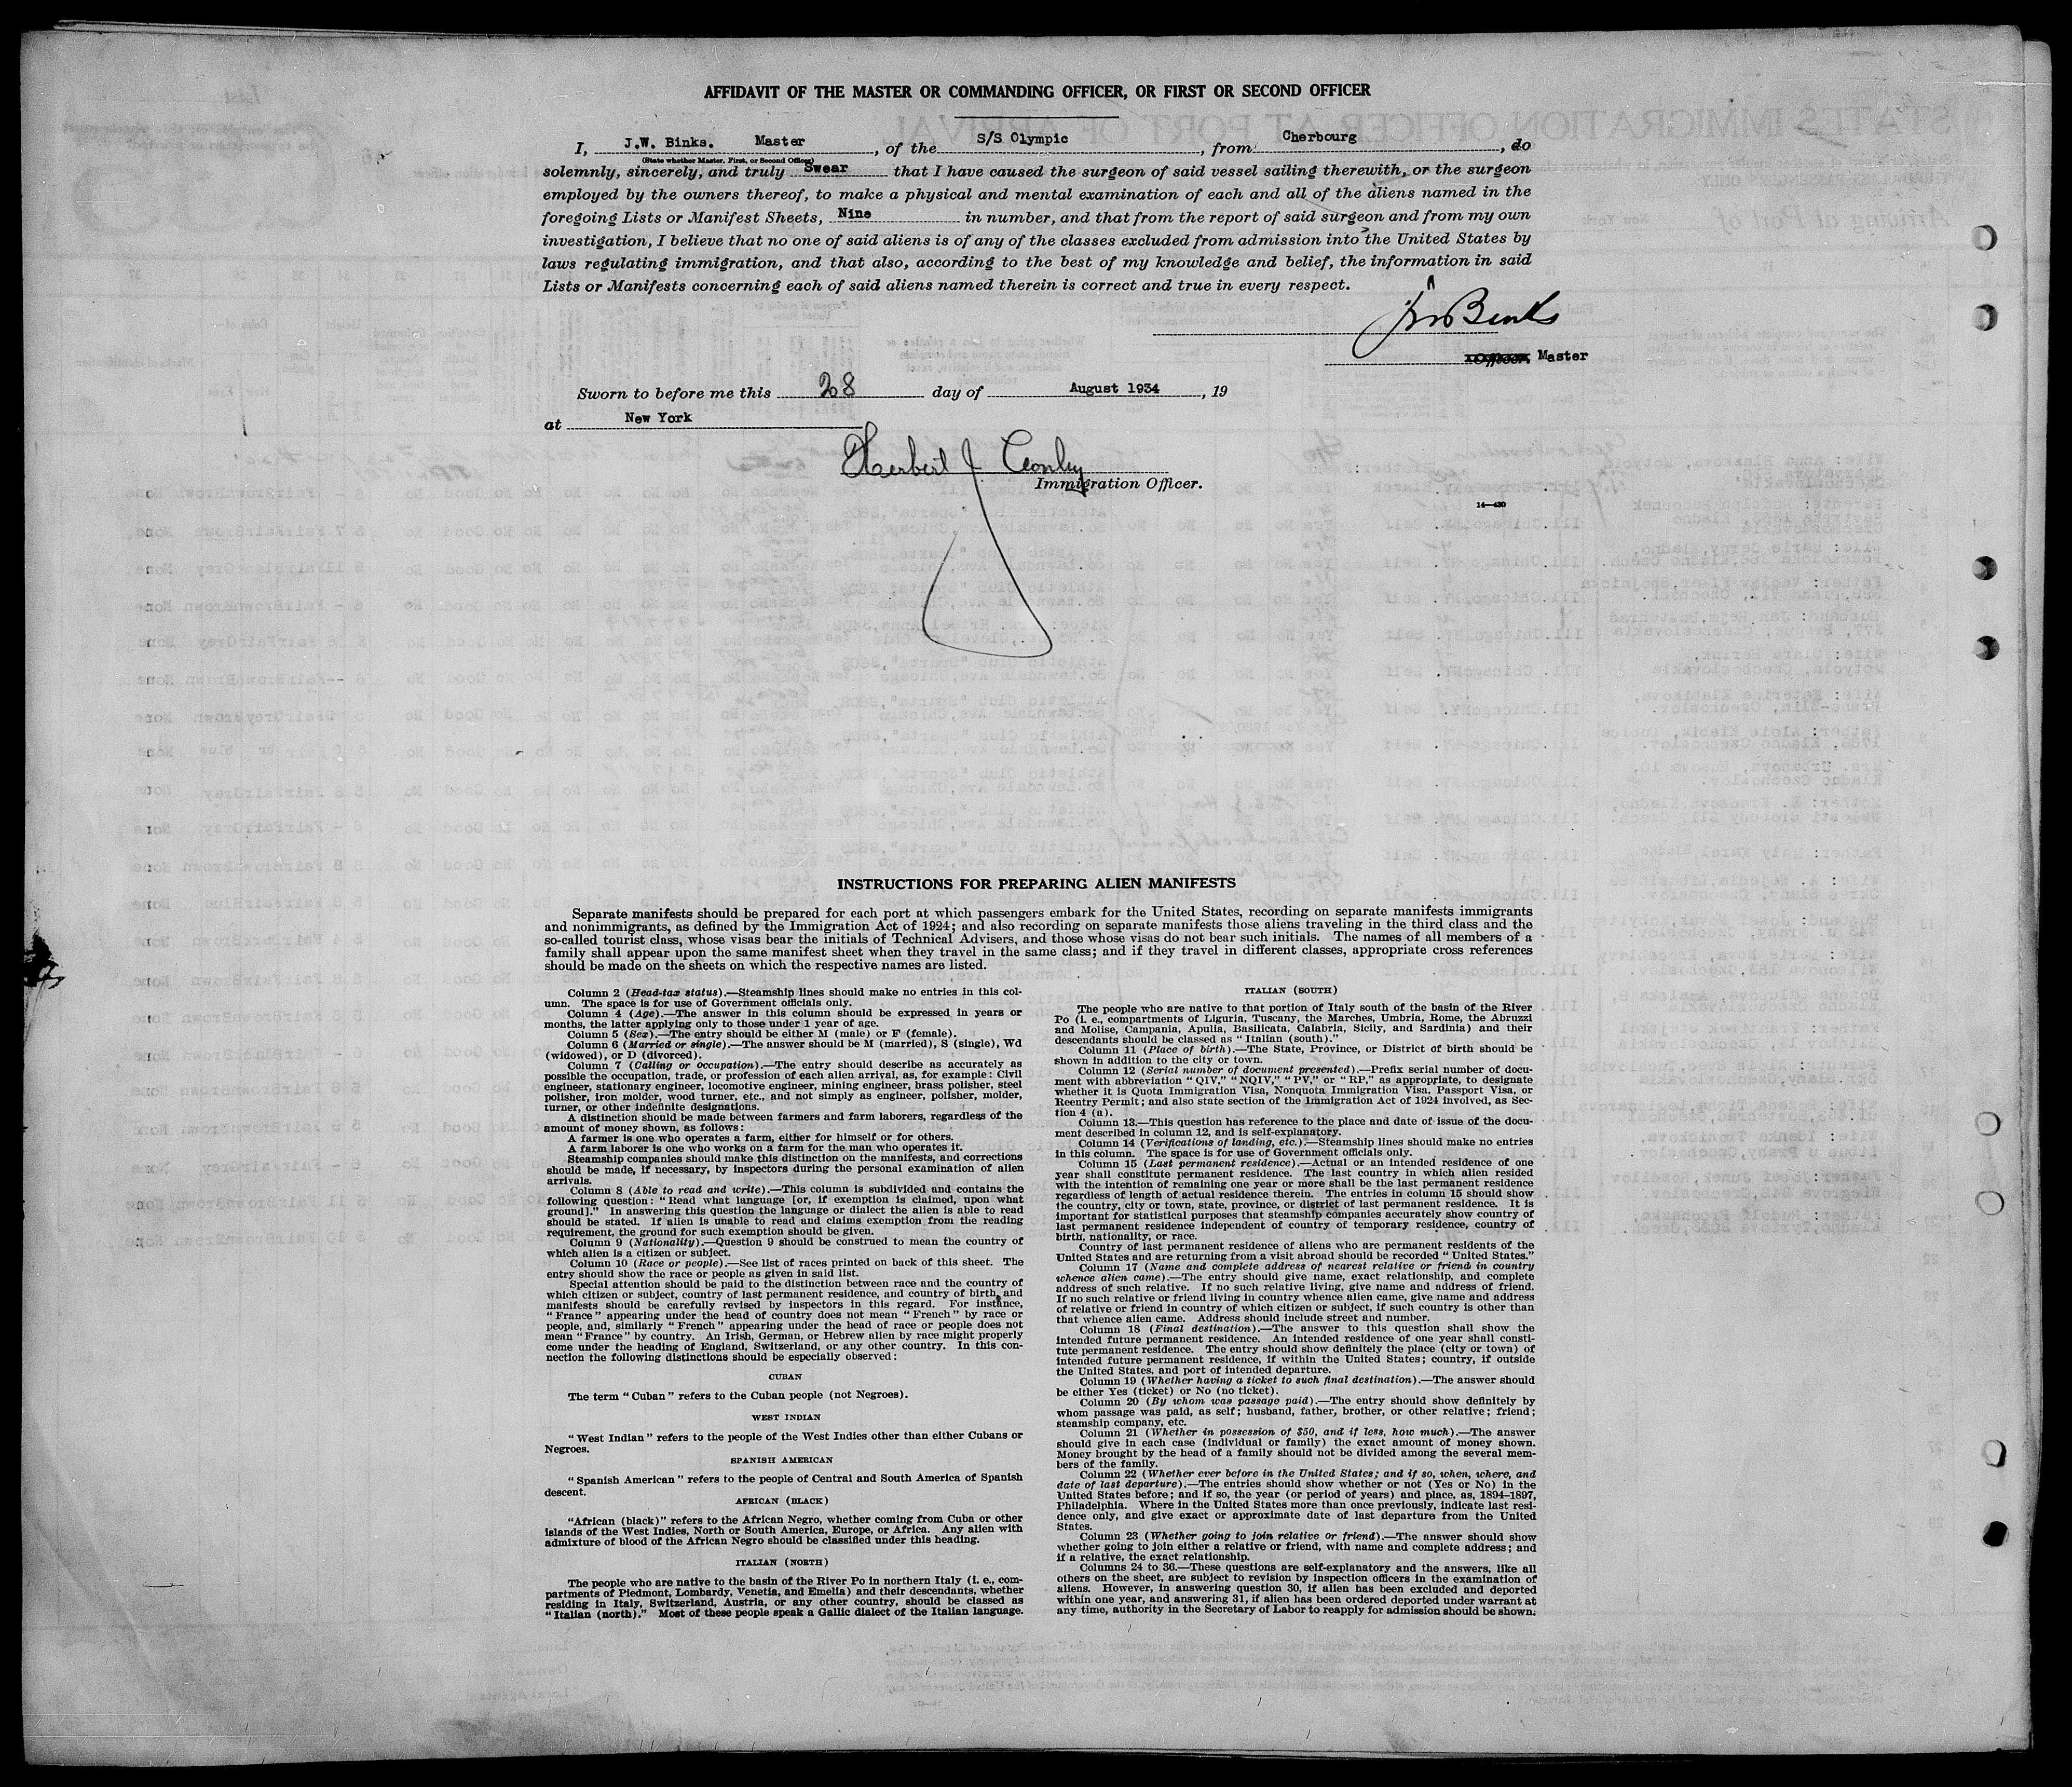 AFFIDAVIT OF THE MASTER OR COMMANDING OFFICER, OR FIRST OR SECOND OFFICER
I, J.W. Binks. Master, of the S/S Olympic, from Cherbourg, do
(State whether Master, First, or Second Officer)
solemnly, sincerely, and truly Swear that I have caused the surgeon of said vessel sailing therewith, or the surgeon
employed by the owners thereof, to make a physical and mental examination of each and all of the aliens named in the
foregoing Lists or Manifest Sheets, Nine in number, and that from the report of said surgeon and from my own
investigation, I believe that no one of said aliens is of any of the classes excluded from admission into the United States by
laws regulating immigration, and that also, according to the best of my knowledge and belief, the information in said
Lists or Manifests concerning each of said aliens named therein is correct and true in every respect.
JW Binks
Officer. Master
Sworn to before me this 28 day of August 1934, 19
at New York
Herbert J
Immigration Officer.
14—430
INSTRUCTIONS FOR PREPARING ALIEN MANIFESTS
Separate manifests should be prepared for each port at which passengers embark for the United States, recording on separate manifests immigrants
and nonimmigrants, as defined by the Immigration Act of 1924; and also recording on separate manifests those aliens traveling in the third class and the
so-called tourist class, whose visas bear the initials of Technical Advisers, and those whose visas do not bear such initials. The names of all members of a
family shall appear upon the same manifest sheet when they travel in the same class; and if they travel in different classes, appropriate cross references
should be made on the sheets on which the respective names are listed.
Column 2 (Head-tax status).—Steamship lines should make no entries in this col-
umn. The space is for use of Government officials only.
Column 4 (Age).—The answer in this column should be expressed in years or
months, the latter applying only to those under 1 year of age.
Column 5 (Sex).—The entry should be either M (male) or F (female).
Column 6 (Married or single).—The answer should be M (married), S (single), Wd
(widowed), or D (divorced).
Column 7 (Calling or occupation).—The entry should describe as accurately as
possible the occupation, trade, or profession of each alien arrival, as, for example: Civil
engineer, stationary engineer, locomotive engineer, mining engineer, brass polisher, steel
polisher, iron molder, wood turner, etc., and not simply as engineer, polisher, molder,
turner, or other indefinite designations.
A distinction should be made between farmers and farm laborers, regardless of the
amount of money shown, as follows:
A farmer is one who operates a farm, either for himself or for others.
A farm laborer is one who works on a farm for the man who operates it.
Steamship companies should make this distinction on the manifests, and corrections
should be made, if necessary, by inspectors during the personal examination of alien
arrivals.
Column 8 (Able to read and write).—This column is subdivided and contains the
following question: "Read what language [or, if exemption is claimed, upon what
ground]." In answering this question the language or dialect the alien is able to read
should be stated. If alien is unable to read and claims exemption from the reading
requirement, the ground for such exemption should be given.
Column 9 (Nationality).—Question 9 should be construed to mean the country of
which alien is a citizen or subject.
Column 10 (Race or people).—See list of races printed on back of this sheet. The
entry should show the race or people as given in said list.
Special attention should be paid to the distinction between race and the country of
which citizen or subject, country of last permanent residence, and country of birth, and
manifests should be carefully revised by inspectors in this regard. For instance,
"France" appearing under the head of country does not mean "French" by race or
people, and, similarly "French" appearing under the head of race or people does not
mean "France" by country. An Irish, German, or Hebrew alien by race might properly
come under the heading of England, Switzerland, or any other country. In this con-
nection the following distinctions should be especially observed:
CUBAN
The term "Cuban" refers to the Cuban people (not Negroes).
WEST INDIAN
"West Indian" refers to the people of the West Indies other than either Cubans or
Negroes.
SPANISH AMERICAN
"Spanish American" refers to the people of Central and South America of Spanish
descent.
AFRICAN (BLACK)
"African (black)" refers to the African Negro, whether coming from Cuba or other
islands of the West Indies, North or South America, Europe, or Africa. Any alien with
admixture of blood of the African Negro should be classified under this heading.
ITALIAN (NORTH)
The people who are native to the basin of the River Po in northern Italy (i. e., com-
partments of Piedmont, Lombardy, Venetia, and Emelia) and their descendants, whether
residing in Italy, Switzerland, Austria, or any other country, should be classed as
"Italian (north)." Most of these people speak a Gallic dialect of the Italian language.
ITALIAN (SOUTH)
The people who are native to that portion of Italy south of the basin of the River
Po (i. e., compartments of Liguria, Tuscany, the Marches, Umbria, Rome, the Abruzzi
and Molise, Campania, Apulia, Basilicata, Calabria, Sicily, and Sardinia) and their
descendants should be classed as "Italian (south)."
Column 11 (Place of birth).—The State, Province, or District of birth should be
shown in addition to the city or town.
Column 12 (Serial number of document presented).—Prefix serial number of docu-
ment with abbreviation "QIV," "NQIV," "PV," or "RP," as appropriate, to designate
whether it is Quota Immigration Visa, Nonquota Immigration Visa, Passport Visa, or
Reentry Permit; and also state section of the Immigration Act of 1924 involved, as Sec-
tion 4 (a).
Column 13.—This question has reference to the place and date of issue of the docu-
ment described in column 12, and is self-explanatory.
Column 14 (Verifications of landing, etc.).—Steamship lines should make no entries
in this column. The space is for use of Government officials only.
Column 15 (Last permanent residence).—Actual or an intended residence of one
year shall constitute permanent residence. The last country in which alien resided
with the intention of remaining one year or more shall be the last permanent residence
regardless of length of actual residence therein. The entries in column 15 should show
the country, city or town, state, province, or district of last permanent residence. It is
important for statistical purposes that steamship companies accurately show country of
last permanent residence independent of country of temporary residence, country of
birth, nationality, or race.
Country of last permanent residence of aliens who are permanent residents of the
United States and are returning from a visit abroad should be recorded "United States."
Column 17 (Name and complete address of nearest relative or friend in country
whence alien came).—The entry should give name, exact relationship, and complete
address of such relative. If no such relative living, give name and address of friend.
If no such relative or friend living in country whence alien came, give name and address
of relative or friend in country of which citizen or subject, if such country is other than
that whence alien came. Address should include street and number.
Column 18 (Final destination).—The answer to this question shall show the
intended future permanent residence. An intended residence of one year shall consti-
tute permanent residence. The entry should show definitely the place (city or town) of
intended future permanent residence, if within the United States; country, if outside
the United States, and port of intended departure.
Column 19 (Whether having a ticket to such final destination).—The answer should
be either Yes (ticket) or No (no ticket).
Column 20 (By whom was passage paid).—The entry should show definitely by
whom passage was paid, as self; husband, father, brother, or other relative; friend;
steamship company, etc.
Column 21 (Whether in possession of $50, and if less, how much).—The answer
should give in each case (individual or family) the exact amount of money shown.
Money brought by the head of a family should not be divided among the several mem-
bers of the family.
Column 22 (Whether ever before in the United States; and if so, when, where, and
date of last departure).—The entries should show whether or not (Yes or No) in the
United States before; and if so, the year (or period of years) and place, as, 1894–1897,
Philadelphia. Where in the United States more than once previously, indicate last resi-
dence only, and give exact or approximate date of last departure from the United
States.
Column 23 (Whether going to join relative or friend).—The answer should show
whether going to join either a relative or friend, with name and complete address; and
if a relative, the exact relationship.
Columns 24 to 36.—These questions are self-explanatory and the answers, like all
others on the sheet, are subject to revision by inspection officers in the examination of
aliens. However, in answering question 30, if alien has been excluded and deported
within one year, and answering 31, if alien has been ordered deported under warrant at
any time, authority in the Secretary of Labor to reapply for admission should be shown.